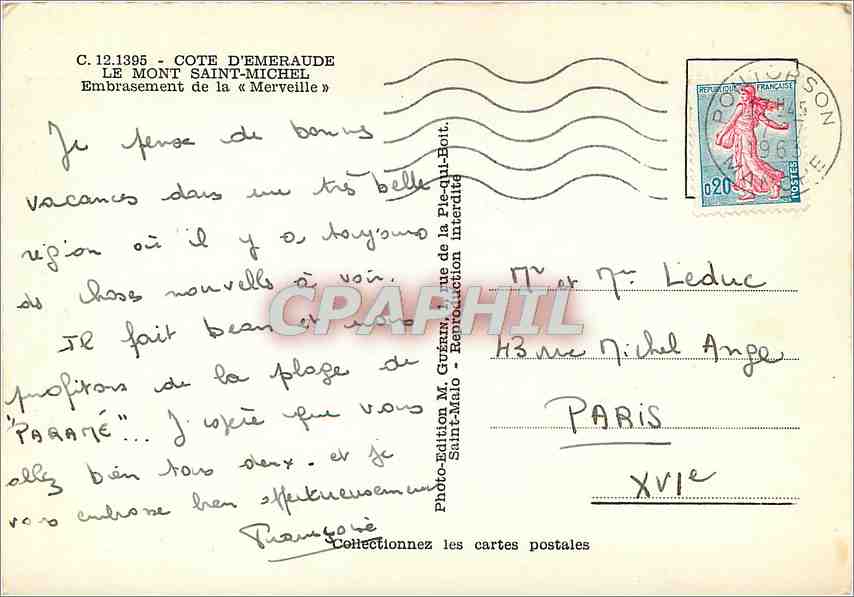 C. 12.1395 - COTE D'EMERAUDE
LE MONT SAINT-MICHEL
Embrasement de la « Merveille »
Je pense de bonnes
vacances dans une très belle
région où il y a toujours
des choses nouvelles à voir.
Il fait beau et nous
profitons de la plage de
"PARAMÉ"... J'espère que vous
allez bien tous deux. et je
vous embrasse bien affectueusement
Françoise
Photo-Edition M. GUÉRIN, 1, rue de la Pie-qui-Boit.
Saint-Malo - Reproduction interdite
REPUBLIQUE FRANÇAISE
0,20
POSTES
PONTORSON
H45
1963
MANCHE
Mr et Mme Leduc
43 rue Michel Ange
PARIS
XVIe
CPAPHIL
Collectionnez les cartes postales